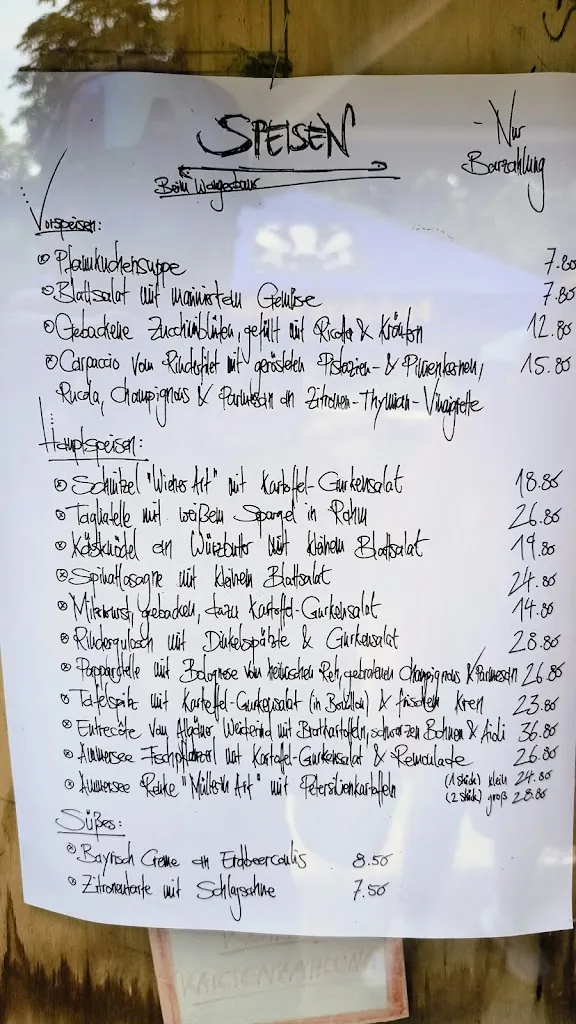 SPEISEN
- Nur
Barzahlung
Beim Wangerbaur
Vorspeisen:
Pfannkuchensuppe 7.80
Blattsalat mit mariniertem Gemüse 7.80
Gebackene Zucchiniblüten, gefüllt mit Ricotta & Kräutern 12.80
Carpaccio vom Rindsfilet mit gerösteten Pistazien- & Pinienkernen, 15.80
Rucola, Champignons & Parmesan an Zitronen-Thymian-Vinaigrette
Hauptspeisen:
Schnitzel "Wiener Art" mit Kartoffel-Gurkensalat 18.80
Tagliatelle mit weißem Spargel in Rahm 26.80
Käsknödel an Würzbutter mit kleinem Blattsalat 19.80
Spinatlasagne mit kleinem Blattsalat 24.80
Milzwurst, gebacken, dazu Kartoffel-Gurkensalat 14.80
Rindergulasch mit Dinkelspätzle & Gurkensalat 28.80
Pappardelle mit Bolognese vom heimischen Reh, gebratenen Champignons & Parmesan 26.80
Tafelspitz mit Kartoffel-Gurkensalat (in Bouillon) & frischem Kren 23.80
Entrecôte vom Allgäuer Weiderind mit Bratkartoffeln, schwarzen Bohnen & Aioli 36.80
Ammersee Fischpflanzerl mit Kartoffel-Gurkensalat & Remoulade 26.80
Ammersee Renke "Müllerin Art" mit Petersilienkartoffeln (1 Stück) klein 24.80
(2 Stück) groß 28.80
Süßes:
Bayrisch Creme an Erdbeercoulis 8.50
Zitronentarte mit Schlagsahne 7.50
KARTENZAHLUNG